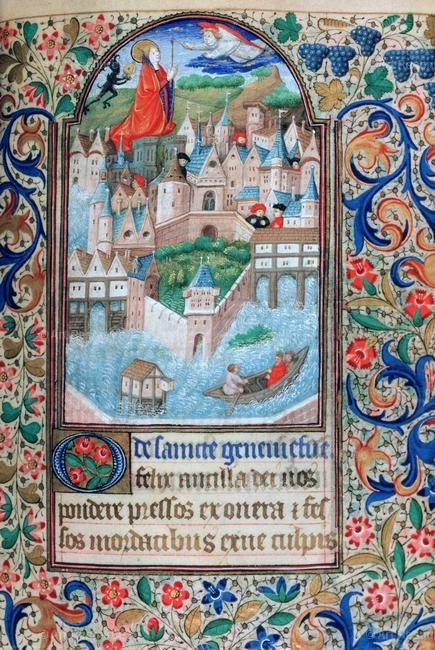 De sancte geneviefue.
O felix ancilla dei nos
pondere pressos exonera ⁊ fes
sos mordacibus exue culpis